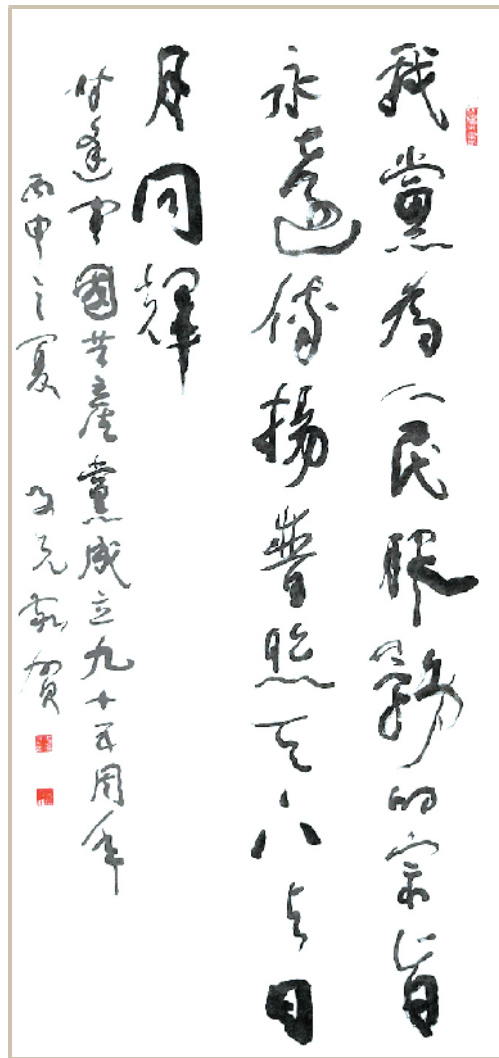 我黨為人民服務的宗旨
永遠傳揚普照天下与日
月同輝
时逢中國共產黨成立九十五周年
丙申之夏 敬賀